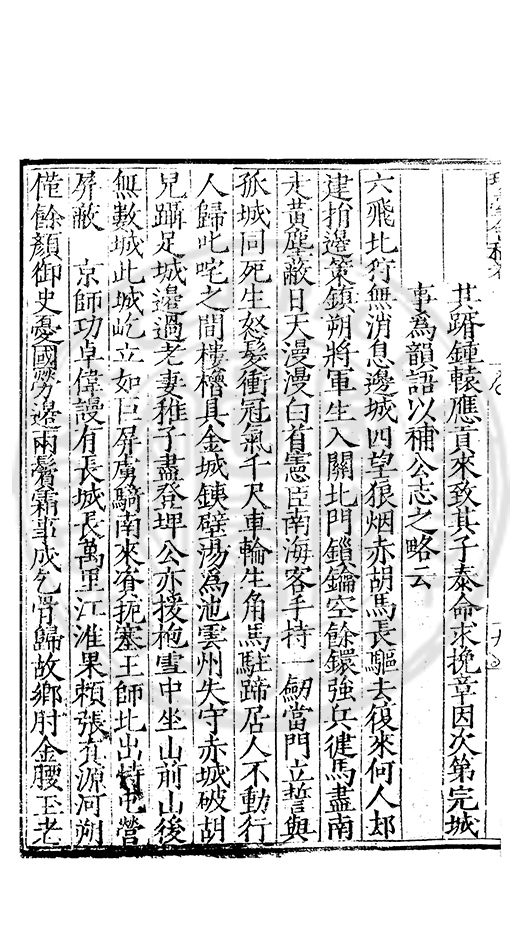 其壻鍾轅應貢來致其子泰命求挽章因次第完城
事為韻語以補公志之略云
六飛北狩無消息邊城四望狼烟赤胡馬長驅去復來何人却
建捐邊策鎮朔將軍生入關北門鎖鑰空餘鐶強兵健馬盡南
走黃塵蔽日天漫漫白首憲臣南海客手持一劒當門立誓與
孤城同死生怒髮衝冠氣千尺車輪生角馬駐蹄居人不動行
人歸叱咤之間樓櫓具金城鉄壁湯為池雲州失守赤城破胡
兒躡足城邊過老妻稚子盡登埤公亦援枹雪中坐山前山後
無數城此城屹立如巨屏虜騎南來資扼塞王師北出恃屯營
屏蔽 京師功卓偉謾有長城長萬里江淮果賴張 源河朔
僅餘顏御史憂國勞邊兩鬢霜事成乞骨歸故鄉肘金腰玉老